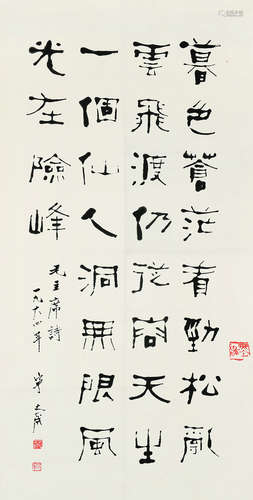 暮色蒼茫看勁松亂
雲飛渡仍從容天生
一個仙人洞無限風
光在險峰
毛主席詩
一九六四年
寧斧成